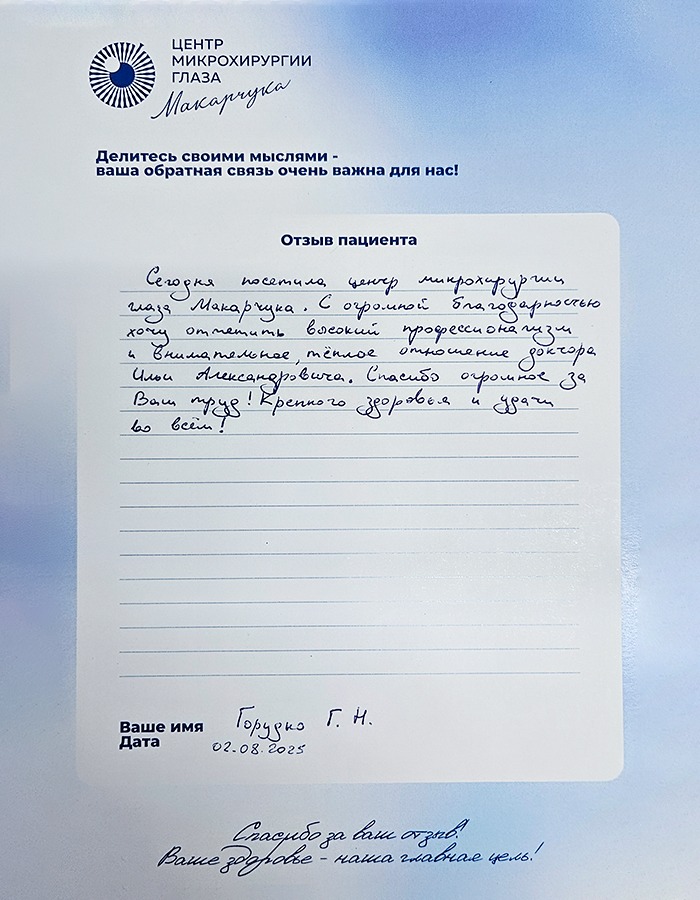 ЦЕНТР
МИКРОХИРУРГИИ
ГЛАЗА
Макарчука
Делитесь своими мыслями -
ваша обратная связь очень важна для нас!
Отзыв пациента
Сегодня посетила центр микрохирургии
глаза Макарчука. С огромной благодарностью
хочу отметить высокий профессионализм
и внимательное, тёплое отношение доктора
Ильи Александровича. Спасибо огромное за
Ваш труд! Крепкого здоровья и удачи
во всём!
Ваше имя Горудко Г. Н.
Дата 02.08.2025
Спасибо за ваш отзыв!
Ваше здоровье - наша главная цель!